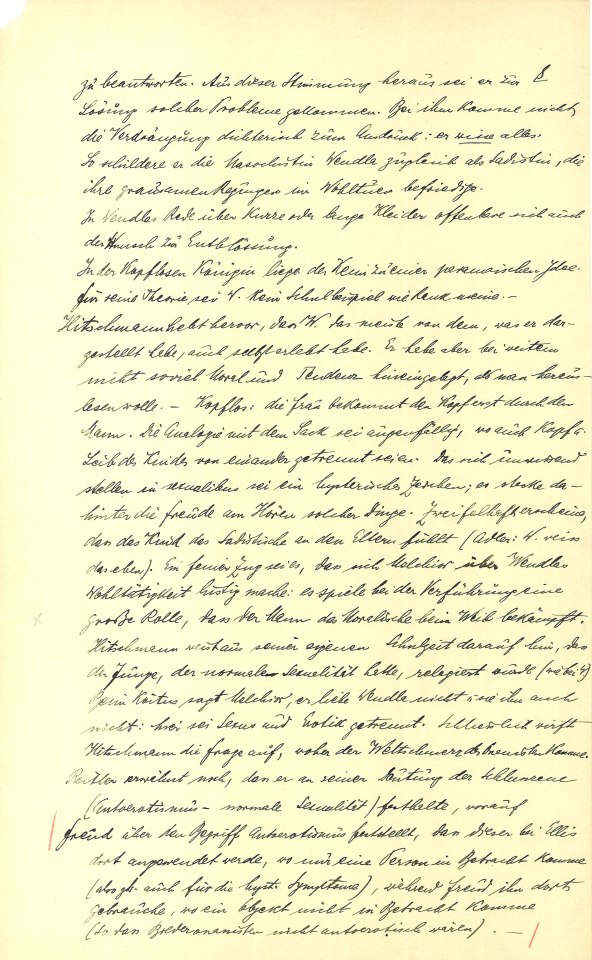 zu beantworten. Aus dieser Stimmung heraus sei er zur
Lösung solcher Probleme gekommen. Bei ihm komme nicht
die Verdrängung dichterisch zum Ausdruck: er wisse alles.
So schildere er die Masochistin Wendla zugleich als Sadistin, die
ihre grausamen Regungen im Wohltun befriedige.
In Wendlas Rede über kurze oder lange Kleider offenbare sich auch
der Wunsch zur Entblössung.
In der Kopflosen Königin liege der Keim zu einer paranoischen Idee.
Für seine Theorie sei W. kein Schulbeispiel wie Rank meine. –
Hitschmann hebt hervor, dass W. das meiste von dem, was er dar-
gestellt habe, auch selbst erlebt habe. Er habe aber bei weitem
nicht soviel Moral und Tendenz hineingelegt, als man heraus-
lesen wolle. – Kopflos: die Frau bekommt den Kopf erst durch den
Mann. Die Analogie mit dem Sack sei augenfällig, wo auch Kopf u.
Leib des Kindes von einander getrennt seien. Das sich unwissend
stellen in sexualibus sei ein hysterisches Zeichen; es stecke da-
hinter die Freude am Hören solcher Dinge. Zweifelhaft erscheine,
dass das Kind das Sadistische an den Eltern fühlt (Adler: W. weiss
das eben). Ein feiner Zug sei es, dass sich Melchior über Wendlas
Wohltätigkeit lustig mache: es spiele bei der Verführung eine
große Rolle, dass der Mann das Moralische beim Weib bekämpft.
Hitschmann weist aus seiner eigenen Schulzeit darauf hin, dass
der Junge, der normale Sexualität hatte, relegiert wurde (wie bei W)
Beim Koitus sagt Melchior, er liebe Wendla nicht u. sie ihn auch
nicht: hier sei Sexus und Erotik getrennt. Schliesslich wirft
Hitschmann die Frage auf, woher der Weltschmerz der komme.
Reitler erwähnt noch, dass er an seiner Deutung der Schlussszene
(Autoerotismus – normale Sexualität) festhalte, worauf
Freud über den Begriff Autoerotismus feststellt, dass dieser bei Ellis
dort angewendet werde, wo nur eine Person in Betracht komme
(also gh. auch für die hyst. Symptome), während Freud ihn dort
gebrauche, wo ein Objekt nicht in Betracht komme
(so dass Bilderonanisten nicht autoerotisch wären). –